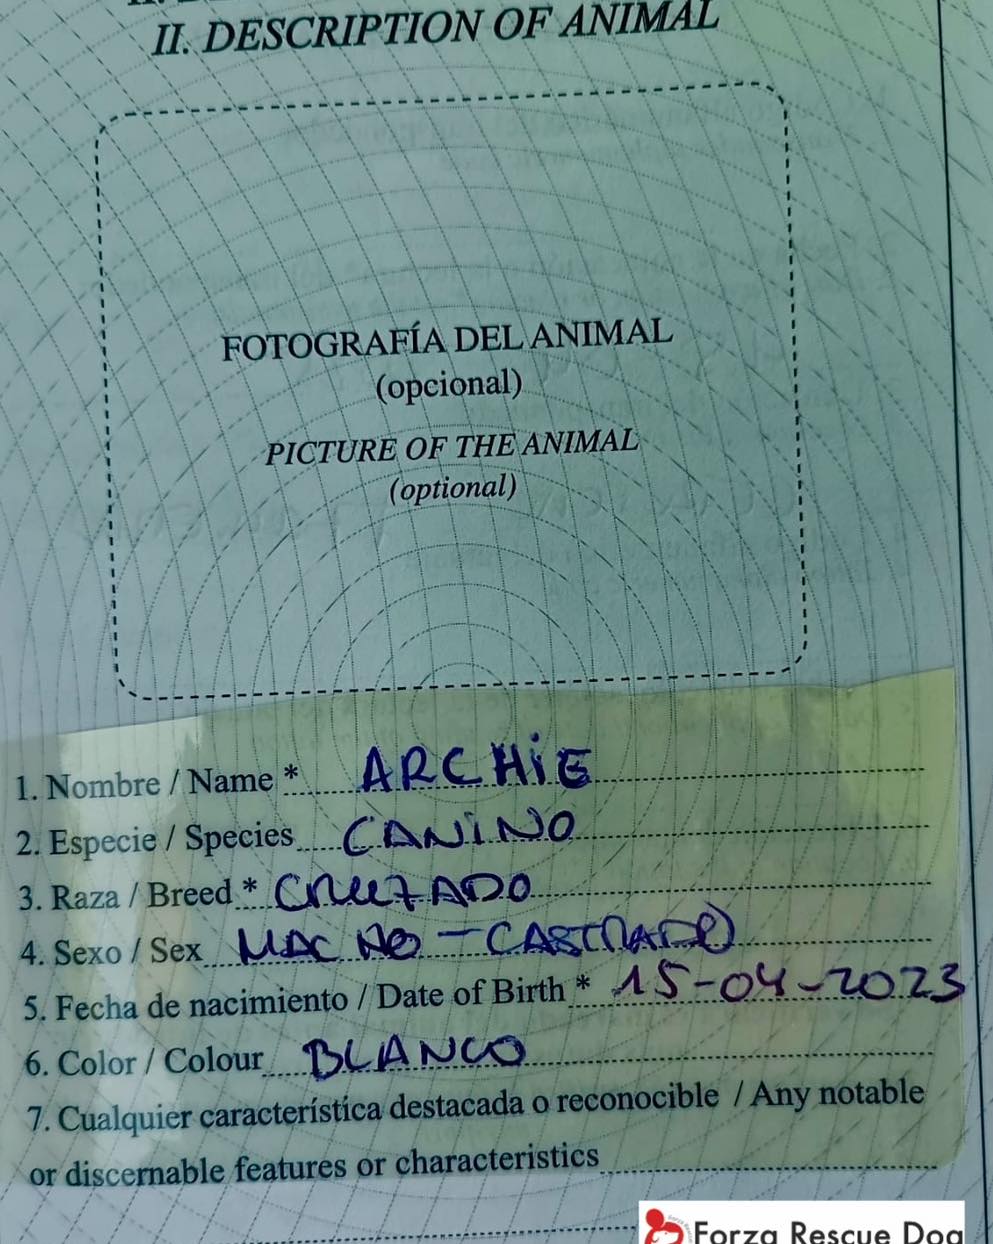 II. DESCRIPTION OF ANIMAL
FOTOGRAFÍA DEL ANIMAL
(opcional)
PICTURE OF THE ANIMAL
(optional)
1. Nombre / Name * ARCHiE
2. Especie / Species CANiNO
3. Raza / Breed * CRUZADO
4. Sexo / Sex MACHO - CASTRADO
5. Fecha de nacimiento / Date of Birth * 15-04-2023
6. Color / Colour BLANCO
7. Cualquier característica destacada o reconocible / Any notable
or discernable features or characteristics
Forza Rescue Dog